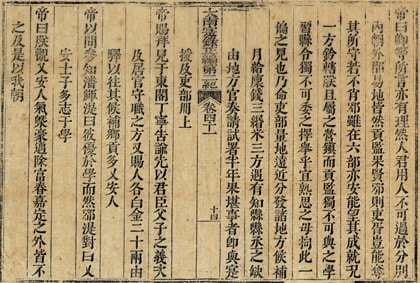 帝曰卿等所言亦有理但人君用人不可過於分別
內鎮外郡易地皆然貢監果賢邪則吏胥豈能奪
其所守若不肖邪雖在六部亦安能望其成就況
一方鈐轄狀屬之營鎮而貢監獨不可與之學
習縣令獨不可委之擇舉乎宜熟思之毋拘此一
偏之見也乃命吏部量地遠近分發諸地方候補
月給廩錢三緡米三方遇有知縣縣丞之缺
由地方官奏請試署半年果堪事者即與寔
授及吏部用上
大南寔錄正編第二紀 卷四十一 十四
帝賜拜見于東閣丁寧告諭先以君臣父子之義次
及居官守職之方又賜人各白金二十兩由
驛以往其候補鄉貢多乂安人
帝以問參知潘湜湜曰彼優於學而然邪湜對曰乂
安士子多志于學
帝曰朕觀乂安人氣槩豪邁除富春嘉定之外皆不
之及是以我朝